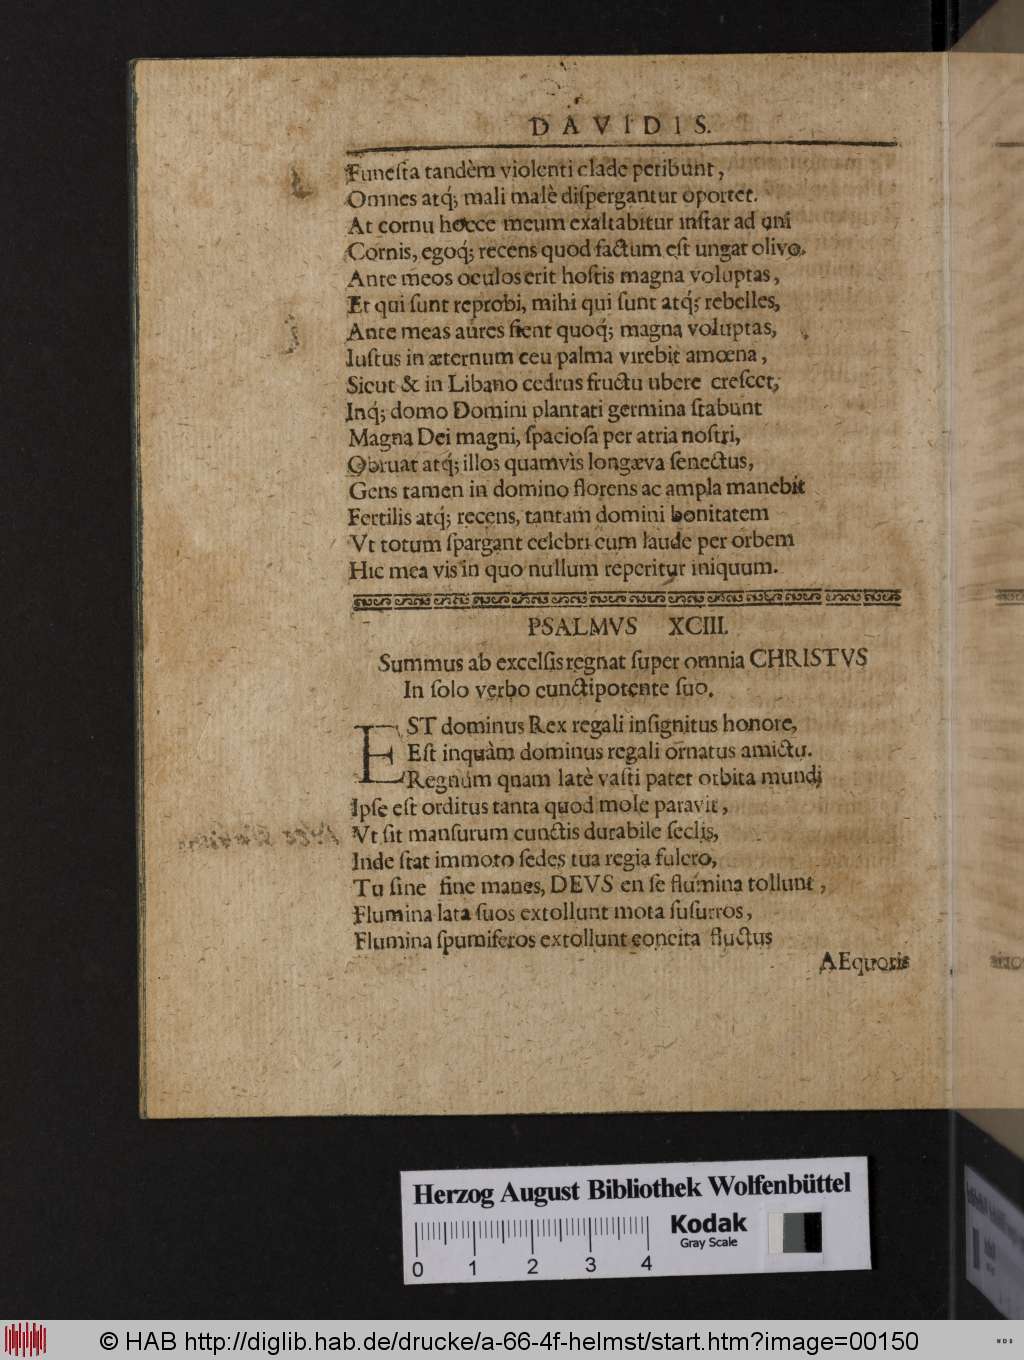 DAVIDIS.
Funeſta tandèm violenti clade peribunt,
Omnes atq́; mali malè diſpergantur oportet.
At cornu hocce meum exaltabitur inſtar ad uni
Cornis, egoq́; recens quod factum eſt ungar olivo.
Ante meos oculos erit hoſtis magna voluptas,
Et qui ſunt reprobi, mihi qui ſunt atq́; rebelles,
Ante meas aures fient quoq́; magna voluptas,
Iuſtus in æternum ceu palma virebit amœna,
Sicut & in Libano cedrus fructu ubere creſcet,
Inq́; domo Domini plantati germina ſtabunt
Magna Dei magni, ſpacioſa per atria noſtri,
Obruat atq́; illos quamvìs longæva ſenectus,
Gens tamen in domino florens ac ampla manebit
Fertilis atq́; recens, tantam domini bonitatem
Vt totum ſpargant celebri cum laude per orbem
Hic mea vis in quo nullum reperitur iniquum.
PSALMVS XCIII.
Summus ab excelſis regnat ſuper omnia CHRISTVS
In ſolo verbo cunctipotente ſuo.
EST dominus Rex regali inſignitus honore,
Eſt inquàm dominus regali ornatus amictu.
Regnum quam latè vaſti patet orbita mundi
Ipſe eſt orditus tanta quod mole paravit,
Vt ſit manſurum cunctis durabile ſeclis,
Inde ſtat immoto ſedes tua regia fulcro,
Tu ſine fine manes, DEVS en ſe flumina tollunt,
Flumina lata ſuos extollunt mota ſuſurros,
Flumina ſpumiferos extollunt concita fluctus
AEquoris
Herzog August Bibliothek Wolfenbüttel
Kodak
Gray Scale
0 1 2 3 4
© HAB http://diglib.hab.de/drucke/a-66-4f-helmst/start.htm?image=00150